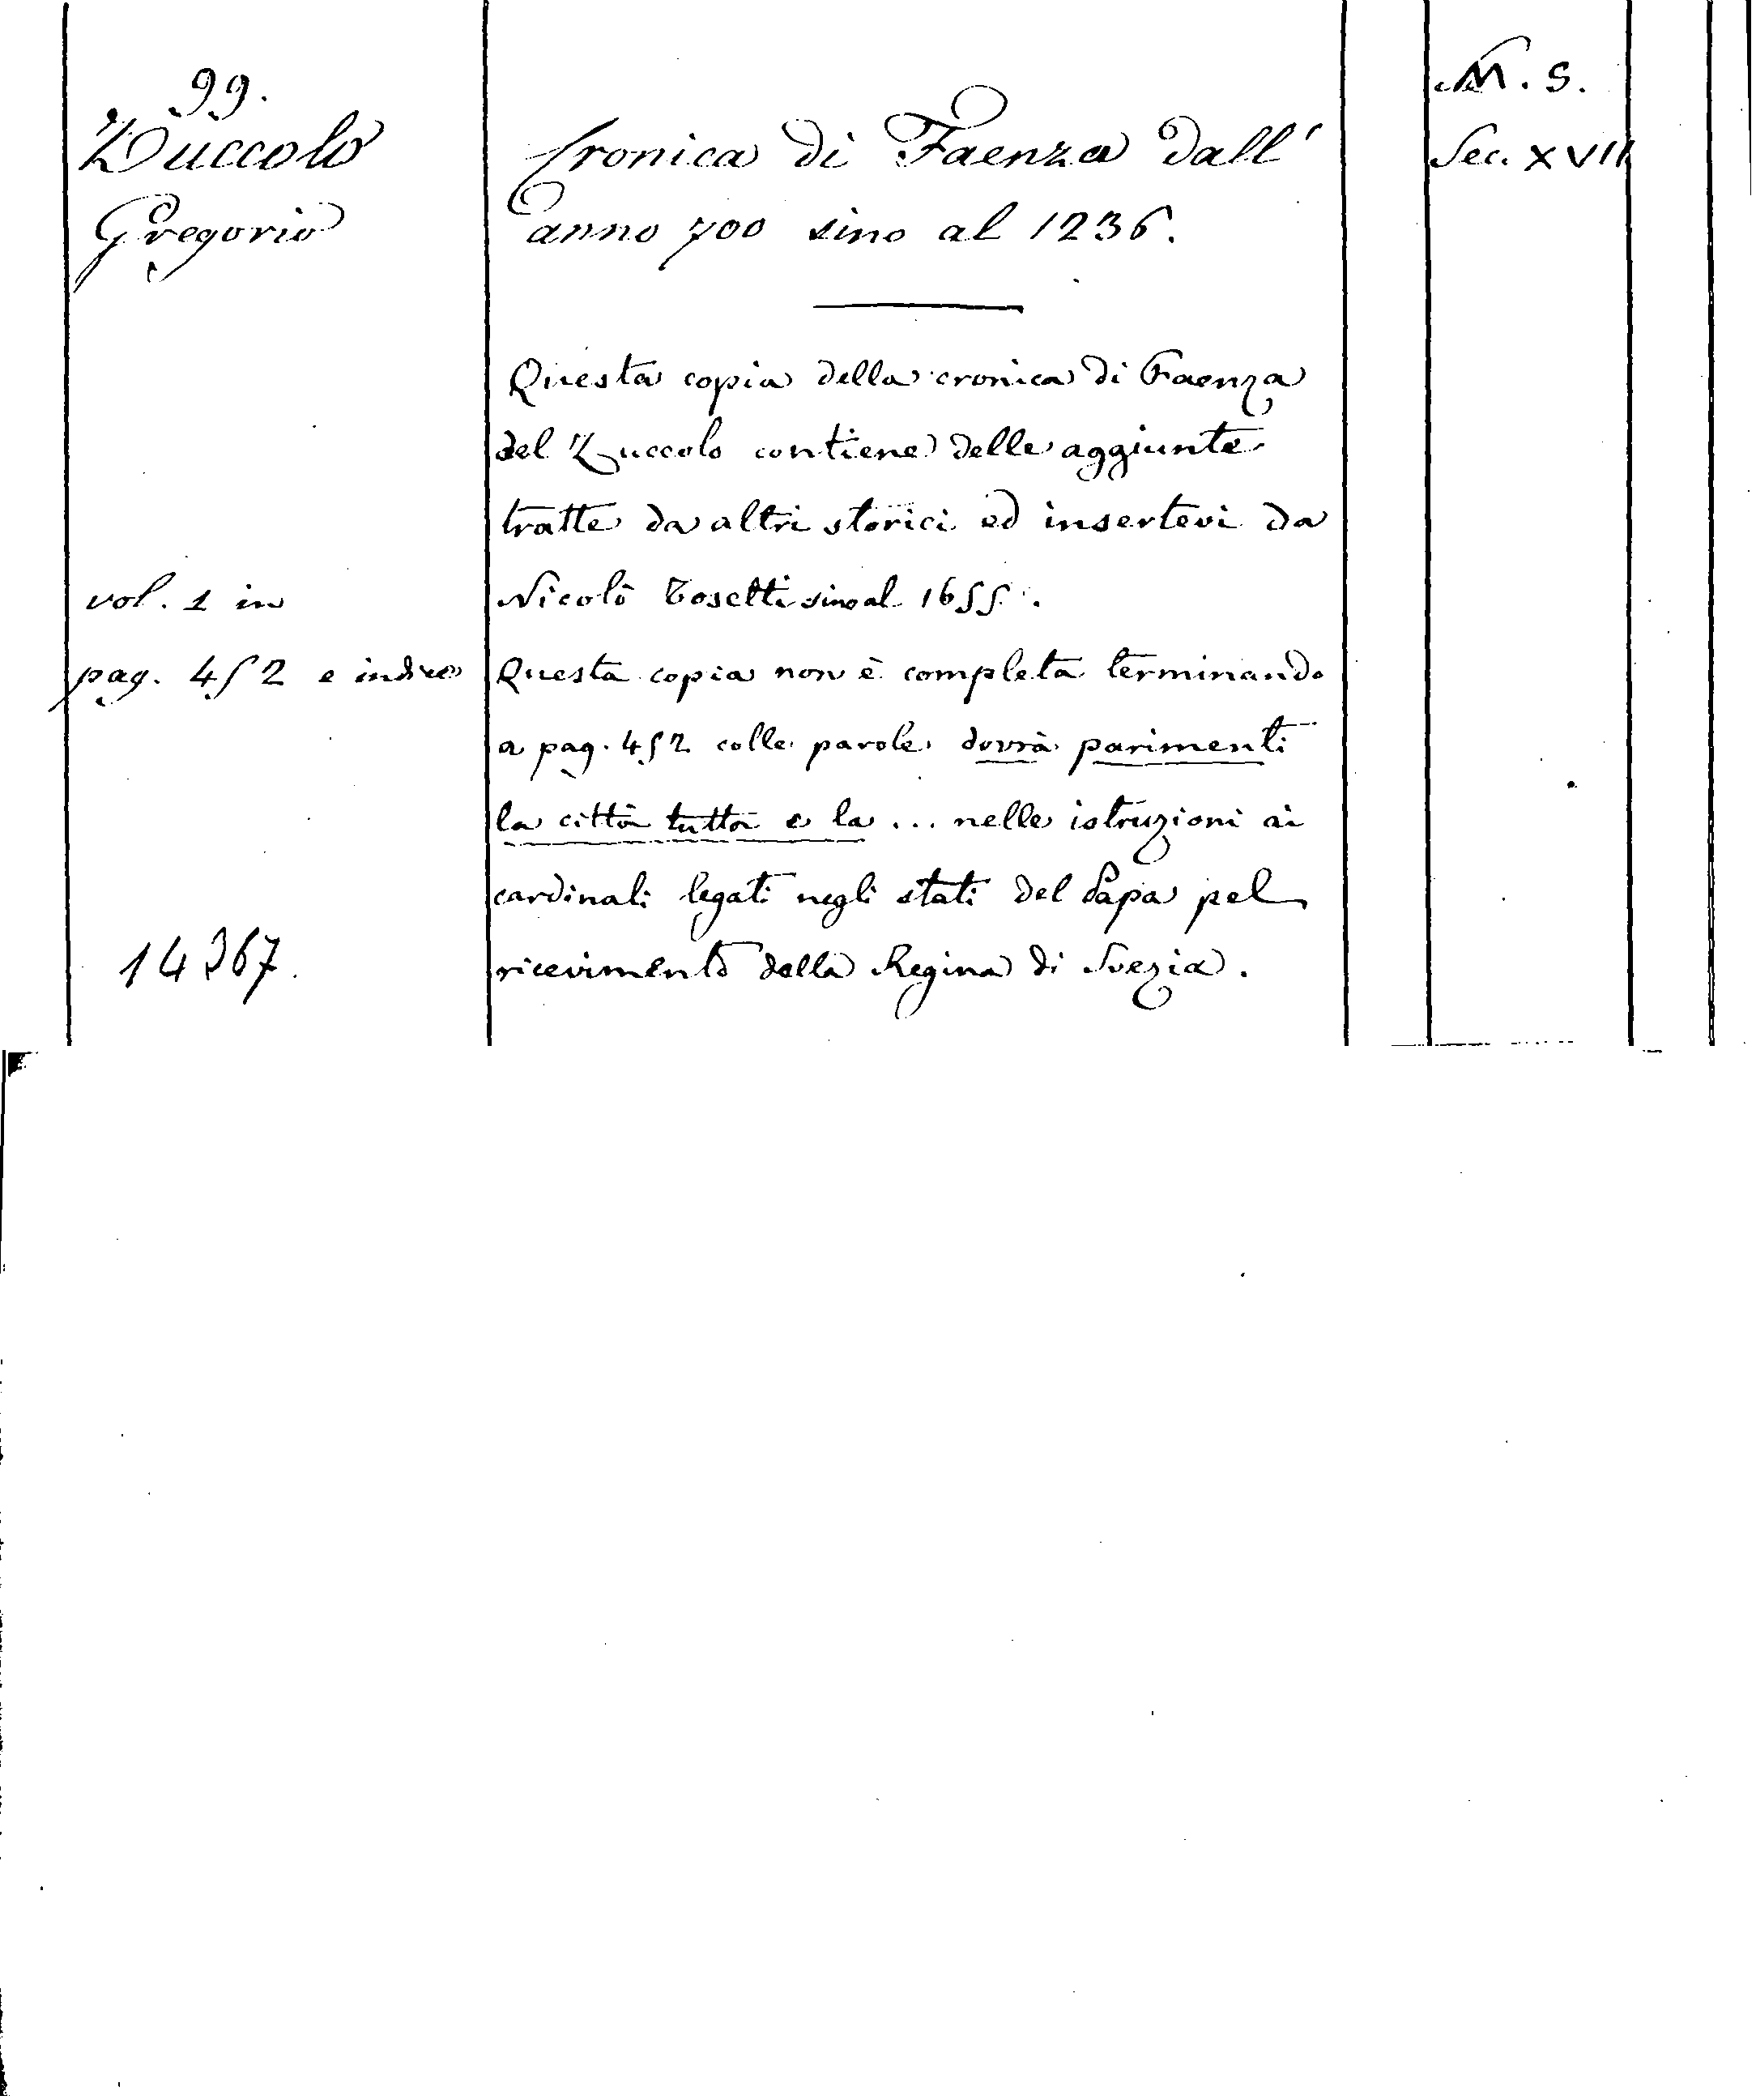 99.
Zuccolo
Gregorio
vol. 1 in
pag. 452 e indice
14367.
Cronica di Faenza dall'
anno 700 sino al 1236.
Questa copia della cronica di Faenza
del Zuccolo contiene delle aggiunte
tratte da altri storici ed insertevi da
Nicolò Tosetti sino al 1655.
Questa copia non è completa terminando
a pag. 452 colle parole dovrà parimenti
la città tutta e la ... nelle istruzioni ai
cardinali legati negli stati del Papa pel
ricevimento della Regina di Svezia.
M. S.
Sec. XVII